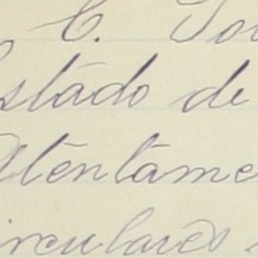 C.
Estado de
Atentame
irculares